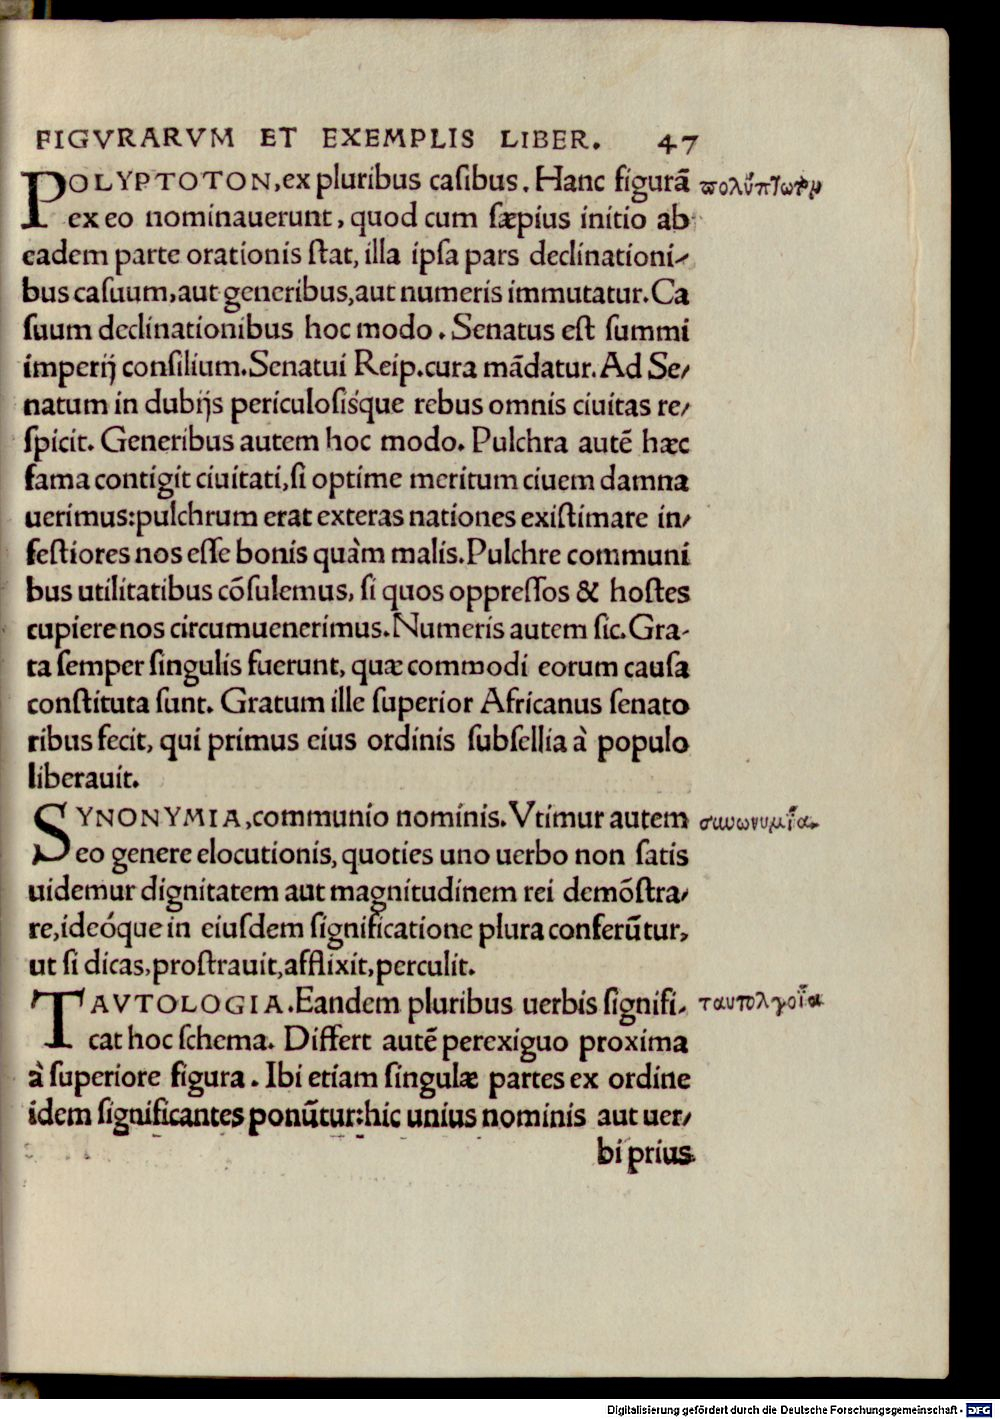 FIGVRARVM ET EXEMPLIS LIBER. 47
POLYPTOTON, ex pluribus caſibus. Hanc figurã
πολύπτωτον
ex eo nominauerunt, quod cum ſæpius initio ab
eadem parte orationis ſtat, illa ipſa pars declinationi-
bus caſuum, aut generibus, aut numeris immutatur. Ca
ſuum declinationibus hoc modo. Senatus eſt ſummi
imperij conſilium. Senatui Reip. cura mãdatur. Ad Se/
natum in dubijs periculoſisq́ue rebus omnis ciuitas re/
ſpicit. Generibus autem hoc modo. Pulchra autẽ hæc
fama contigit ciuitati, ſi optime meritum ciuem damna
uerimus: pulchrum erat exteras nationes exiſtimare in/
feſtiores nos eſſe bonis quàm malis. Pulchre communi
bus utilitatibus cõſulemus, ſi quos oppreſſos & hoſtes
cupiere nos circumuenerimus. Numeris autem ſic. Gra-
ta ſemper ſingulis fuerunt, quæ commodi eorum cauſa
conſtituta ſunt. Gratum ille ſuperior Africanus ſenato
ribus fecit, qui primus eius ordinis ſubſellia à populo
liberauit.
SYNONYMIA, communio nominis. Vtimur autem
συνωνυμία.
eo genere elocutionis, quoties uno uerbo non ſatis
uidemur dignitatem aut magnitudinem rei demõſtra/
re, ideóque in eiuſdem ſignificatione plura conferũtur,
ut ſi dicas, proſtrauit, afflixit, perculit.
TAVTOLOGIA. Eandem pluribus uerbis ſignifi-
cat hoc ſchema. Differt autẽ perexiguo proxima
à ſuperiore figura. Ibi etiam ſingulæ partes ex ordine
idem ſignificantes ponũtur: hic unius nominis aut uer/
bi prius
Digitalisierung gefördert durch die Deutsche Forschungsgemeinschaft - DFG